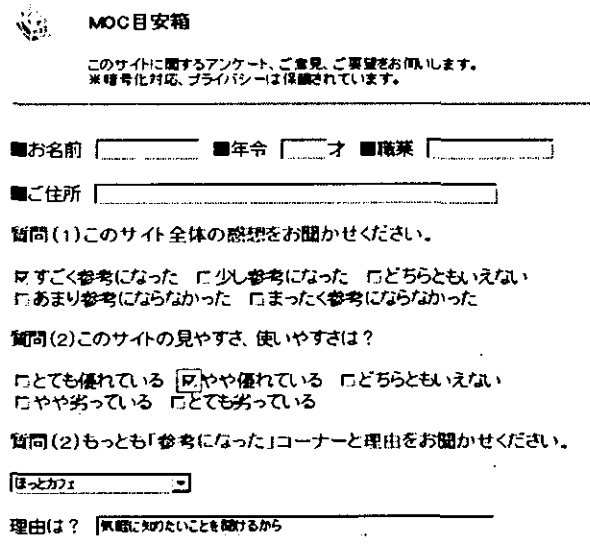 MOC目安箱
このサイトに関するアンケート、ご意見、ご要望をお伺いします。
※暗号化対応、プライバシーは保護されています。
■お名前 ■年令 才 ■職業
■ご住所
質問(1)このサイト全体の感想をお聞かせください。
すごく参考になった 少し参考になった どちらともいえない
あまり参考にならなかった まったく参考にならなかった
質問(2)このサイトの見やすさ、使いやすさは？
とても優れている やや優れている どちらともいえない
やや劣っている とても劣っている
質問(2)もっとも「参考になった」コーナーと理由をお聞かせください。
ほっとカフェ
理由は？ 気軽に知りたいことを聞けるから